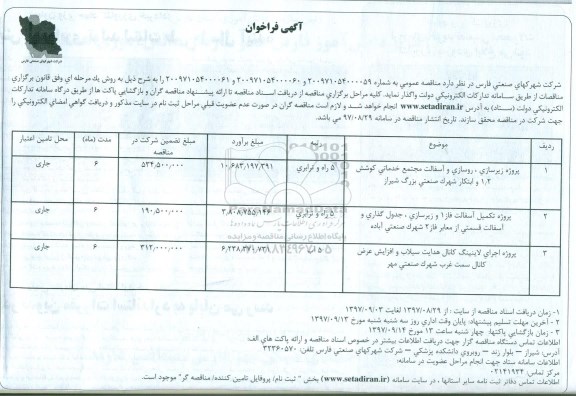 آگهی فراخوان
شرکت شهرکهای صنعتی فارس
شرکت شهرکهای صنعتی فارس در نظر دارد مناقصه عمومی به شماره ۲۰۰۹۷۱۰۵۴۰۰۰۰۵۹ و ۲۰۰۹۷۱۰۵۴۰۰۰۰۶۰ و ۲۰۰۹۷۱۰۵۴۰۰۰۰۶۱ را به شرح ذیل به روش یك مرحله ای وفق قانون برگزاری
مناقصات از طریق سامانه تدارکات الکترونیکی دولت واگذار نماید. کلیه مراحل برگزاری مناقصه از دریافت اسناد مناقصه تا ارائه پیشنهاد مناقصه گران و بازگشایی پاکت ها از طریق درگاه سامانه تدارکات
الکترونیکی دولت (ستاد) به آدرس www.setadiran.ir انجام خواهد شد و لازم است مناقصه گران در صورت عدم عضویت قبلی مراحل ثبت نام در سایت مذکور و دریافت گواهی امضای الکترونیکی را
جهت شرکت در مناقصه محقق سازند. تاریخ انتشار مناقصه در سامانه ۹۷/۰۸/۲۹ می باشد.
ردیف موضوع رتبه مبلغ برآورد مبلغ تضمین شرکت در مناقصه مدت (ماه) محل تامین اعتبار
۱ پروژه زیرسازی ، روسازی و آسفالت مجتمع خدماتی کوشش ۱،۲ و ابتکار شهرك صنعتی بزرگ شیراز ۵ راه و ترابری ۱۰،۶۸۳،۱۹۷،۳۹۱ ۵۳۴،۵۰۰،۰۰۰ ۶ جاری
۲ پروژه تکمیل آسفالت فاز۱ و زیرسازی ، جدول گذاری و آسفالت قسمتی از معابر فاز۲ شهرك صنعتی آباده ۵ راه و ترابری ۳،۸۰۸،۷۵۵،۱۴۶ ۱۹۰،۵۰۰،۰۰۰ ۶ جاری
۳ پروژه اجرای لاینینگ کانال هدایت سیلاب و افزایش عرض کانال سمت غرب شهرك صنعتی مهر ۵ آب ۶،۲۳۸،۳۷۱،۷۳۸ ۳۱۲،۰۰۰،۰۰۰ ۶ جاری
۱- زمان دریافت اسناد مناقصه از سایت : از ۱۳۹۷/۰۸/۲۹ لغایت ۱۳۹۷/۰۹/۰۳
۲ - آخرین مهلت تسلیم پیشنهاد: پایان وقت اداری روز سه شنبه مورخ ۱۳۹۷/۰۹/۱۳
۳ - زمان بازگشایی پاکتها: چهار شنبه ساعت ۱۳ مورخ ۱۳۹۷/۰۹/۱۴
اطلاعات تماس دستگاه مناقصه گزار جهت دریافت اطلاعات بیشتر در خصوص اسناد مناقصه و ارائه پاکت های الف:
آدرس: شیراز – بلوار زند – روبروی دانشکده پزشکی – شرکت شهرکهای صنعتی فارس تلفن: ۳۲۳۶۰۵۷۰
اطلاعات سامانه ستاد جهت انجام مراحل عضویت در سامانه:
مرکز تماس: ۰۲۱۴۱۹۳۴
اطلاعات تماس دفاتر ثبت نامه سایر استانها ، در سایت سامانه (www.setadiran.ir) بخش " ثبت نام/ پروفایل تامین کننده/ مناقصه گر" موجود است.